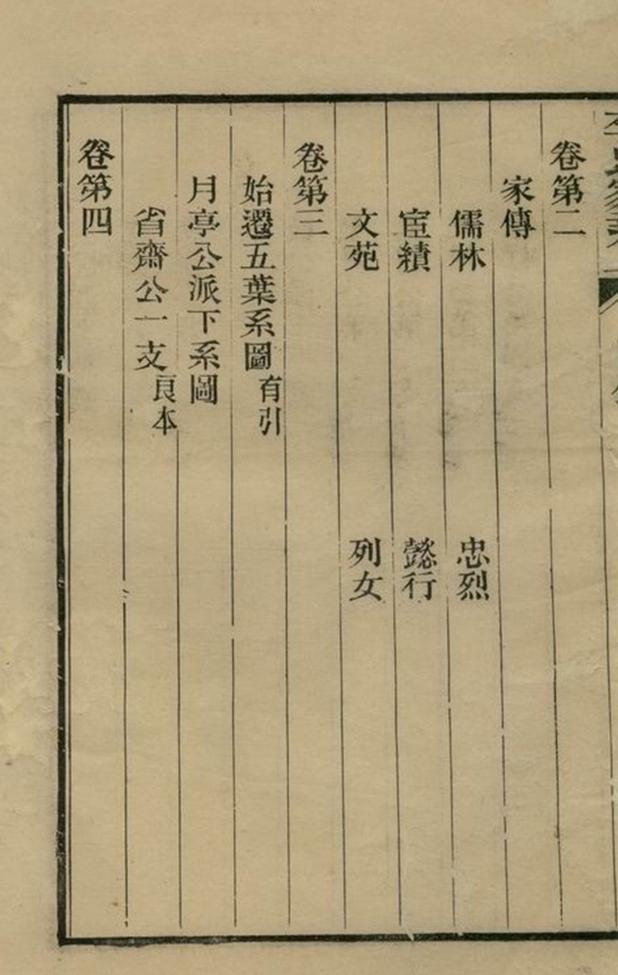 卷第二
家傳
儒林 忠烈
宦績 懿行
文苑 列女
卷第三
始遷五葉系圖有引
月亭公派下系圖
省齋公一支良本
卷第四